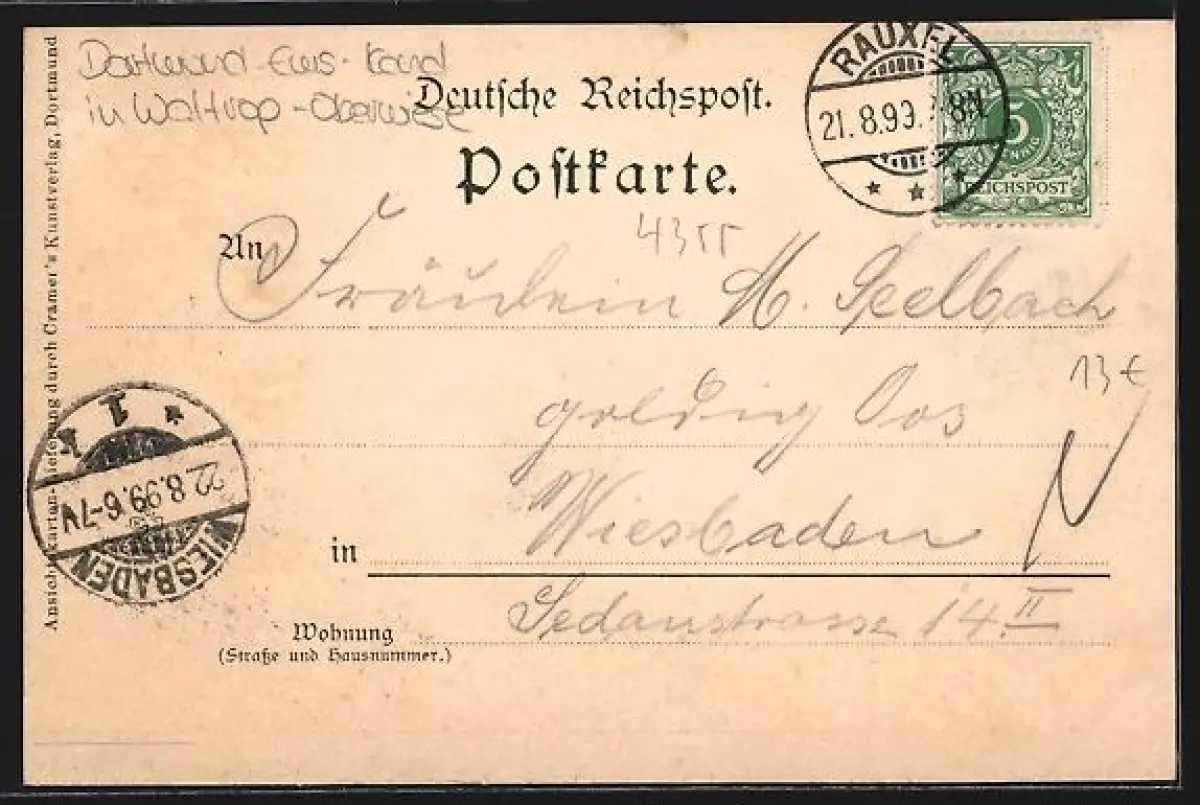 Dortmund-Ems-Kanal
in Waltrop-Oberwiese
Deutsche Reichspost.
Postkarte.
RAUXEL
21. 8.99. 7-8N
5
PFENNIG
REICHSPOST
4355
An Fräulein M. Seelbach
13 €
goldig Oos
in Wiesbaden
Sedanstrasse 14 II
Wohnung
(Straße und Hausnummer.)
WIESBADEN
22.8.99.6-7V
1
Ansichtskarten-Lieferung durch Cramer's Kunstverlag, Dortmund